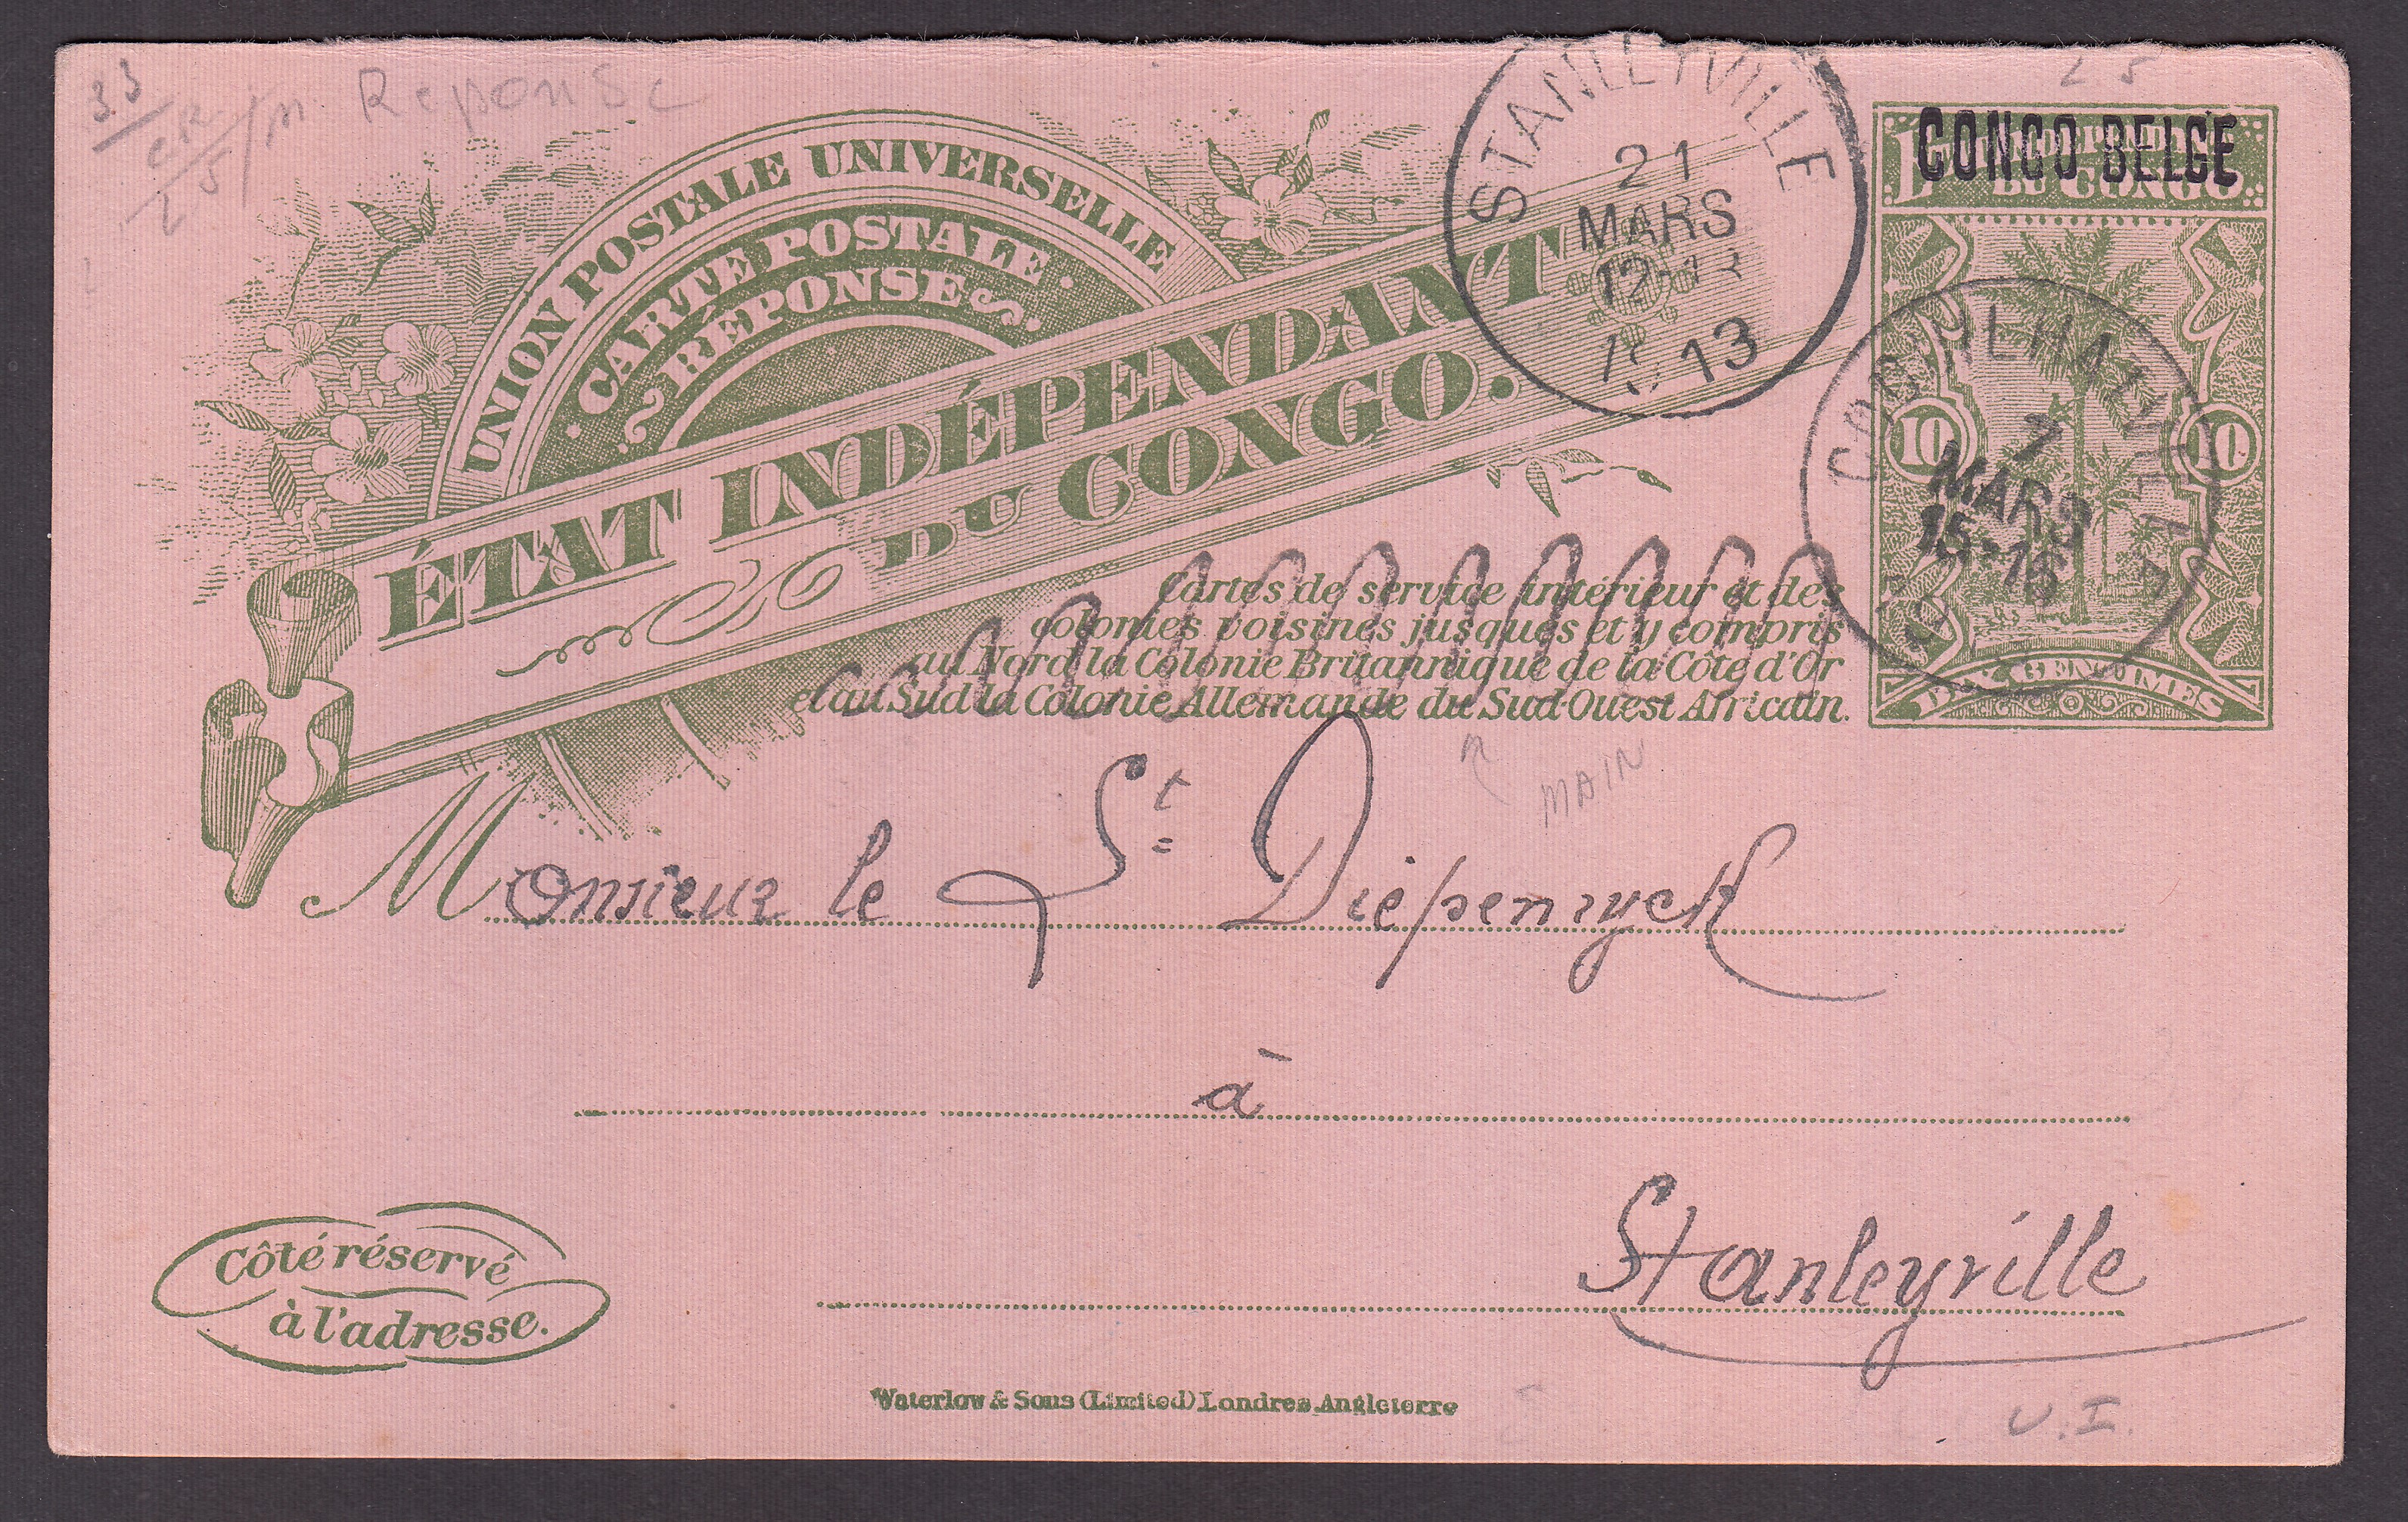 33
Réponse
UNION POSTALE UNIVERSELLE
CARTE POSTALE
RÉPONSE
ÉTAT INDÉPENDANT
DU CONGO.
STANLEYVILLE
21
MARS
12-13
13
CONGO BELGE
DU CONGO
10 10
COQUILHATVILLE
7
MARS
15-16
DIX CENTIMES
Cartes de service intérieur et des
colonies voisines jusques et y compris
au Nord la Colonie Britannique de la Côte d'Or
et au Sud la Colonie Allemande du Sud-Ouest Africain.
MAIN
Monsieur le St Diepenryck
à
Stanleyville
Côté réservé
à l'adresse.
Waterlow & Sons (Limited) Londres Angleterre
U.I.